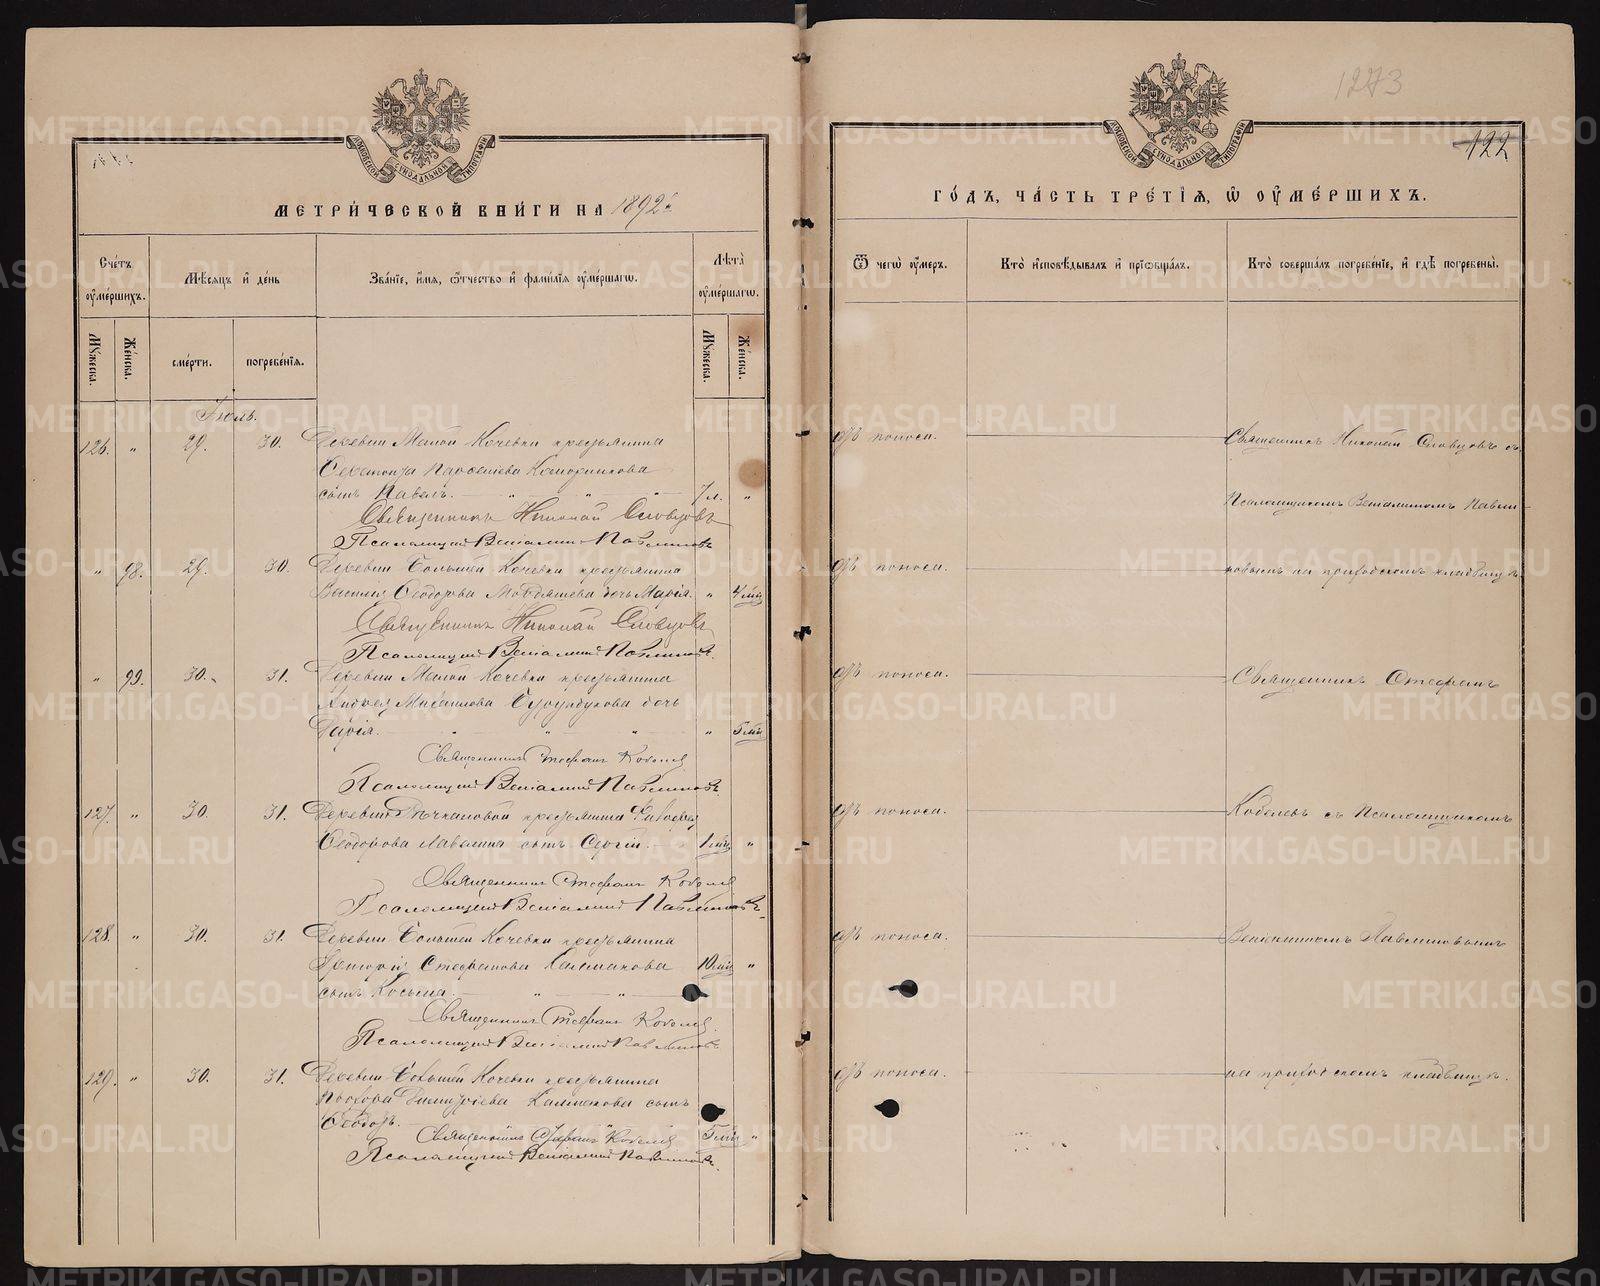 МЕТРИ́ЧЕСКОЙ КНИ́ГИ НА 1892 г.
Сче́тъ оу҆ме́ршихъ.
Мѣсяцъ и҆ де́нь
Зва́нїе, и҆́мя, ѻ҆́тчество и҆ фами́лїя оу҆ме́ршагѡ.
Лѣ́та оу҆ме́ршагѡ.
Мꙋжеска.
Же́нска.
сме́рти.
погребе́нїя.
Мꙋжеска.
Же́нска.
Іюль.
126. " 29. 30. Деревни Малой Кочевки крестьянина
Ферапонта Парфеніева
сынъ Павелъ. 7 л. "
Священникъ Николай Словцовъ
Псаломщикъ Веніаминъ Павлиновъ
" 98. 29. 30. Деревни Большей Кочевки крестьянина
Василія Ѳеодорова дочь Марія. " 4 мѣс.
Священникъ Николай Словцовъ
Псаломщикъ Веніаминъ Павлиновъ
" 99. 30. 31. Деревни Малой Кочевки крестьянина
Андрея Михаилова дочь
Дарія. " 5 мѣс.
Священникъ Стефанъ Кобелевъ
Псаломщикъ Веніаминъ Павлиновъ
127. " 30. 31. Деревни крестьянина
Ѳеодорова сынъ Сергій. 1 мѣс. "
Священникъ Стефанъ Кобелевъ
Псаломщикъ Веніаминъ Павлиновъ
128. " 30. 31. Деревни Большей Кочевки крестьянина
Григорія Стефанова Калмакова 10 мѣс. "
сынъ Косьма.
Священникъ Стефанъ Кобелевъ
Псаломщикъ Веніаминъ Павлиновъ
129. " 30. 31. Деревни Большей Кочевки крестьянина
Прохора Димитріева Калмакова сынъ
Ѳеодоръ. 5 мѣс. "
Священникъ Стефанъ Кобелевъ
Псаломщикъ Веніаминъ Павлиновъ
1273
122
ГО́ДЪ, ЧА́СТЬ ТРЕ́ТЇЯ, Ѡ҆ ОУ҆МЕ́РШИХЪ.
Ѿ чегѡ̀ оу҆́меръ.
Кто̀ и҆сповѣ́дывалъ и҆ прїѡбща́лъ.
Кто̀ соверша́лъ погребе́нїе, и҆ гдѣ̀ погребены̀.
отъ поноса.
Священникъ Николай Словцовъ съ
Псаломщикомъ Веніаминомъ Павли-
отъ поноса.
новымъ на приходскомъ кладбищѣ.
отъ поноса.
Священникъ Стефанъ
отъ поноса.
Кобелевъ съ Псаломщикомъ
отъ поноса.
Веніаминомъ Павлиновымъ
отъ поноса.
на приходскомъ кладбищѣ.
METRIKI.GASO-URAL.RU